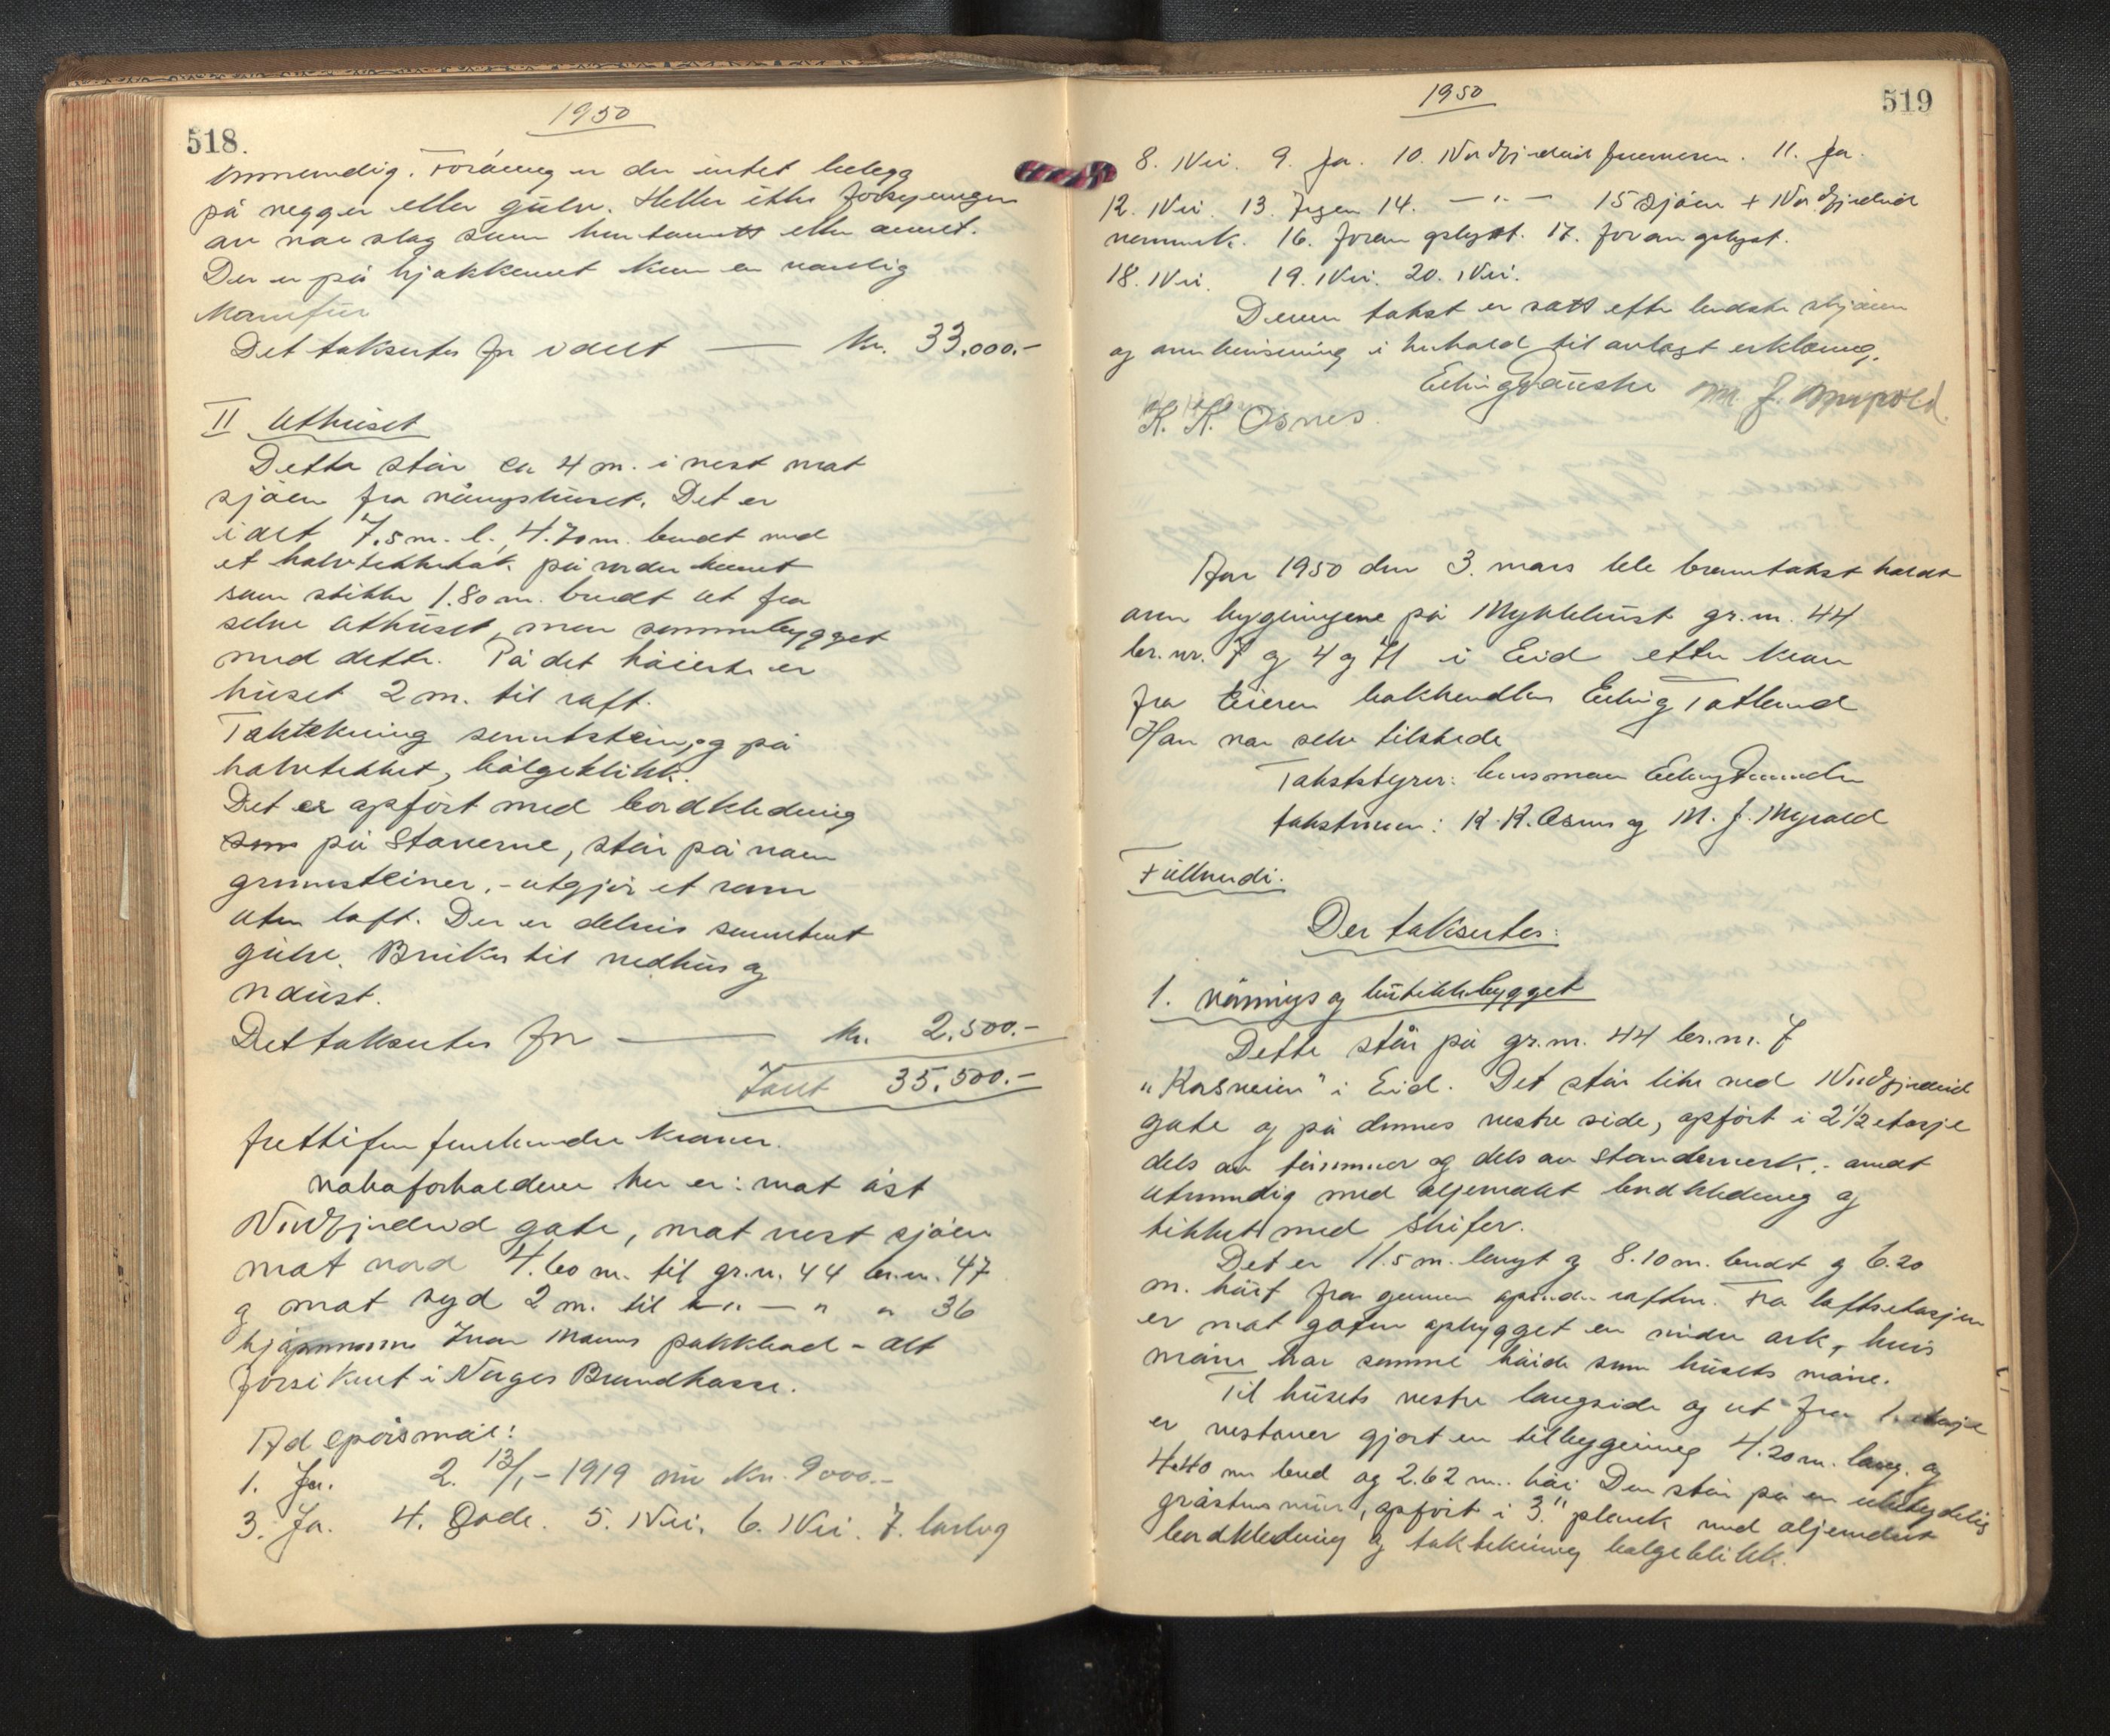 1950
518.
innvendig. Foråvrig er der intet belegg
på vegger eller gulv. Heller ikke forsyninger
av noe slag som
eller annet.
Der er på kjøkkenet kun en vanlig
komfür
Det takseres for i alt — kr. 33.000.-
II Uthuset
Dette står ca 4 m. i vest mot
sjøen fra våningshuset. Det er
i alt 7.5 m. l., 4.70 m. bredt med
et halvtekkehak på nordre
som stikker 1.80 m. bredt ut fra
selve uthuset, men sammenbygget
med dette. På det høieste er
huset 2 m. til raft.
Taktekning sementstein, og på
halvtekket, bølgeblikk.
Det er opført med bordkledning
som på staverne, står på noen
grunnsteiner, - utgjør et rom
uten loft. Der er delvis sementert
gulv. Brukes til vedhus og
naust.
Det takseres for — kr. 2.500.-
I alt 35.500.-
frettifem femhundre kroner.
Naboforholdene her er: mot øst
Nordfjordeid gate, mot vest sjøen
mot nord 4.60 m. til gr.n. 44 br.n. 47
og mot syd 2 m. til —"— " " 36
kjøpmann Ivar Manns pakkbod - alt
forsikret i Norges Brandkasse.
Ad spørsmål:
1. Ja. 2. 13/1 - 1919 nu kr. 9000.-
3. Ja. 4. Gode. 5. Nei. 6. Nei. 7. lovlig
1950
519
8. Nei. 9. Ja. 10. Nordfjordeid 11. Ja.
12. Nei. 13. Ingen 14. —"— 15 Sjøen + Nordfjordeid
vannverk. 16. Foran gelyst. 17. foran gelyst.
18. Nei. 19. Nei. 20. Nei.
Denne takst er satt efter bedste skjønn
og overbevisning i henhold til avlagt erklæring.
Erling M. J. Myrvold.
K. K. Osnes.
Aar 1950 den 3. mars ble branntakst holdt
over bygningene på Myklebust gr.nr. 44
br.nr. 7 og 4 og 41 i Eid etter krav
fra eieren bokhandler Erling Totland
Han var selv tilstede
Takststyrer: lensmann Erling
takstmenn: K. K. Osnes og M. J. Myrvold
Fullmedi.
Der takseres:
1. Vånings og butikkbygget
Dette står på gr.nr. 44 br.nr. 7
"Kasveien" i Eid. Det står like ved Nordfjordeid
gate og på dennes vestre side, opført i 2 1/2 etasje
dels av tømmer og dels av standerverk, - omdt
utvendig med oljemalt bordkledning og
tekket med skifer.
Det er 11.5 m. langt og 8.10 m. bredt og 6.20
m. høit fra grunnen op under raften. Fra loftsetasjen
er mot gaten opbygget en mindre ark, hvis
møne har samme høide som husets møne.
Til husets vestre langside og ut fra 1. etasje
er vestover gjort en tilbygning 4.20 m. lang, og
4.40 m bred og 2.62 m. høi Den står på en ubetydelig
gråstens mur, opført i 3" plank med oljemalt
bordkledning og taktekning bølgeblikk.